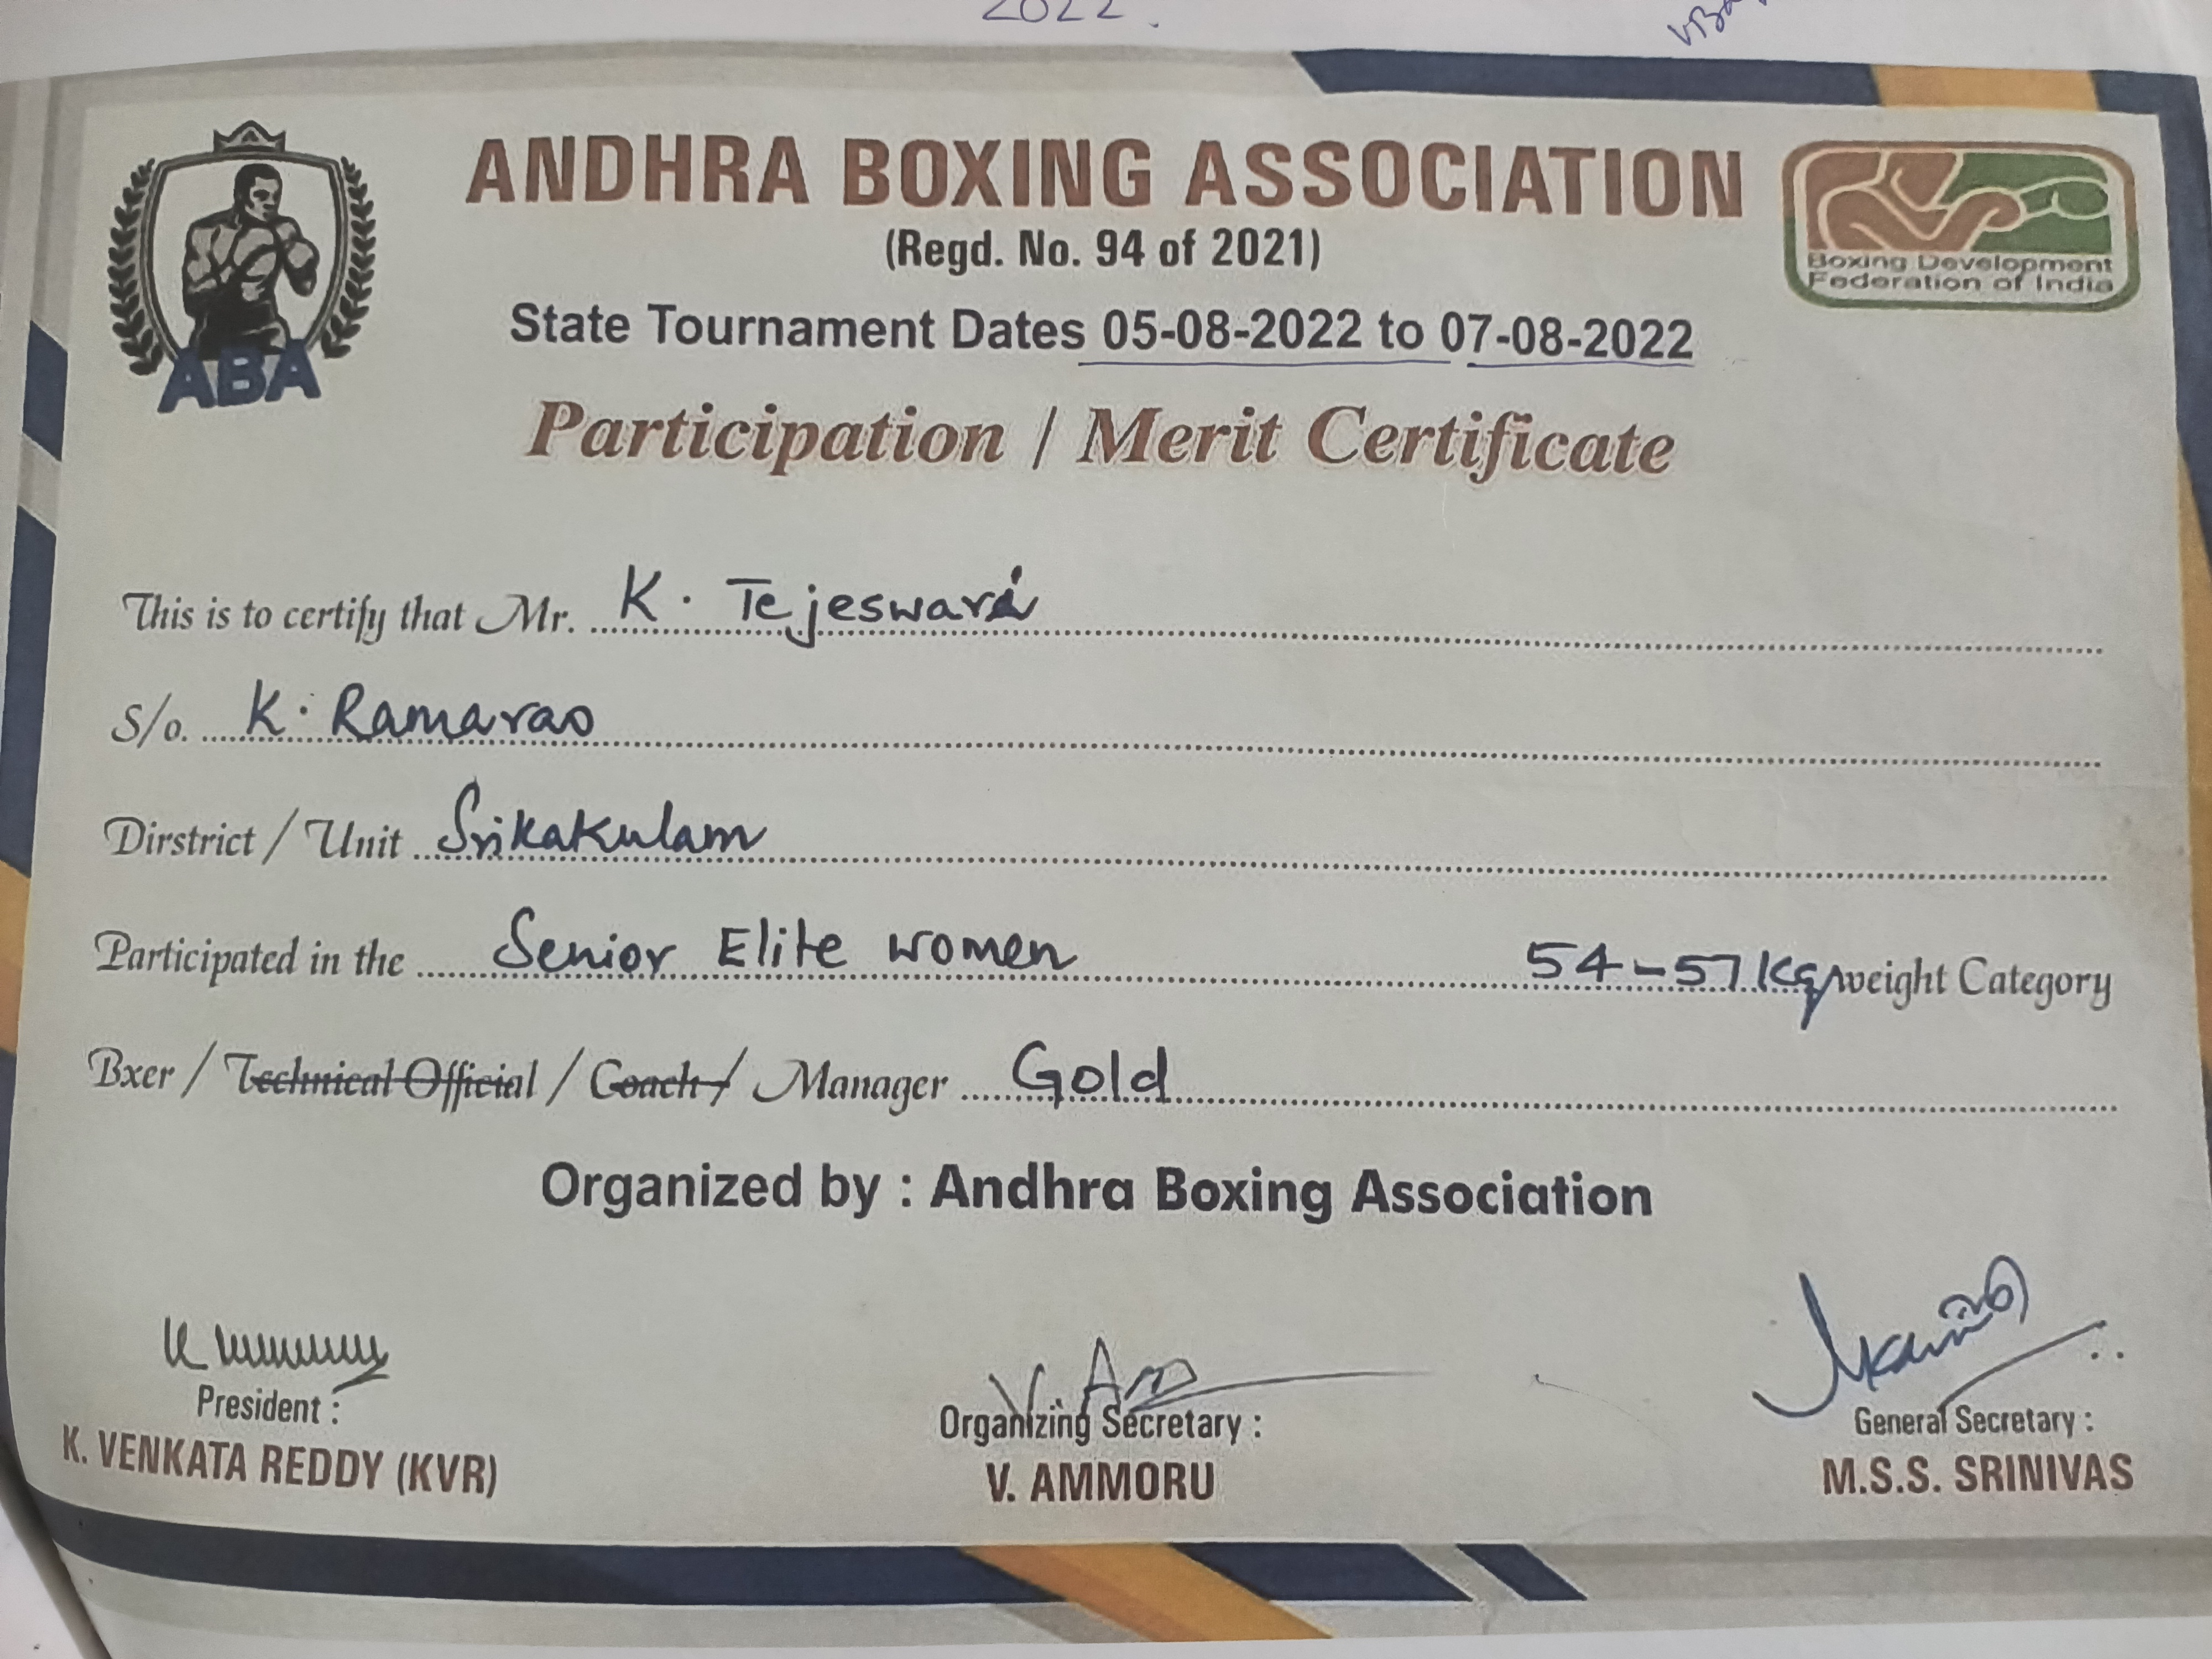 2022.
ANDHRA BOXING ASSOCIATION
(Regd. No. 94 of 2021)
Boxing Development
Federation of India
ABA
State Tournament Dates 05-08-2022 to 07-08-2022
Participation / Merit Certificate
This is to certify that Mr. K. Tejeswari
S/o. K. Ramarao
Dirstrict / Unit Srikakulam
Participated in the Senior Elite women 54-57 Kg weight Category
Bxer / Technical Official / Coach / Manager Gold
Organized by : Andhra Boxing Association
President :
K. VENKATA REDDY (KVR)
Organizing Secretary :
V. AMMORU
General Secretary :
M.S.S. SRINIVAS